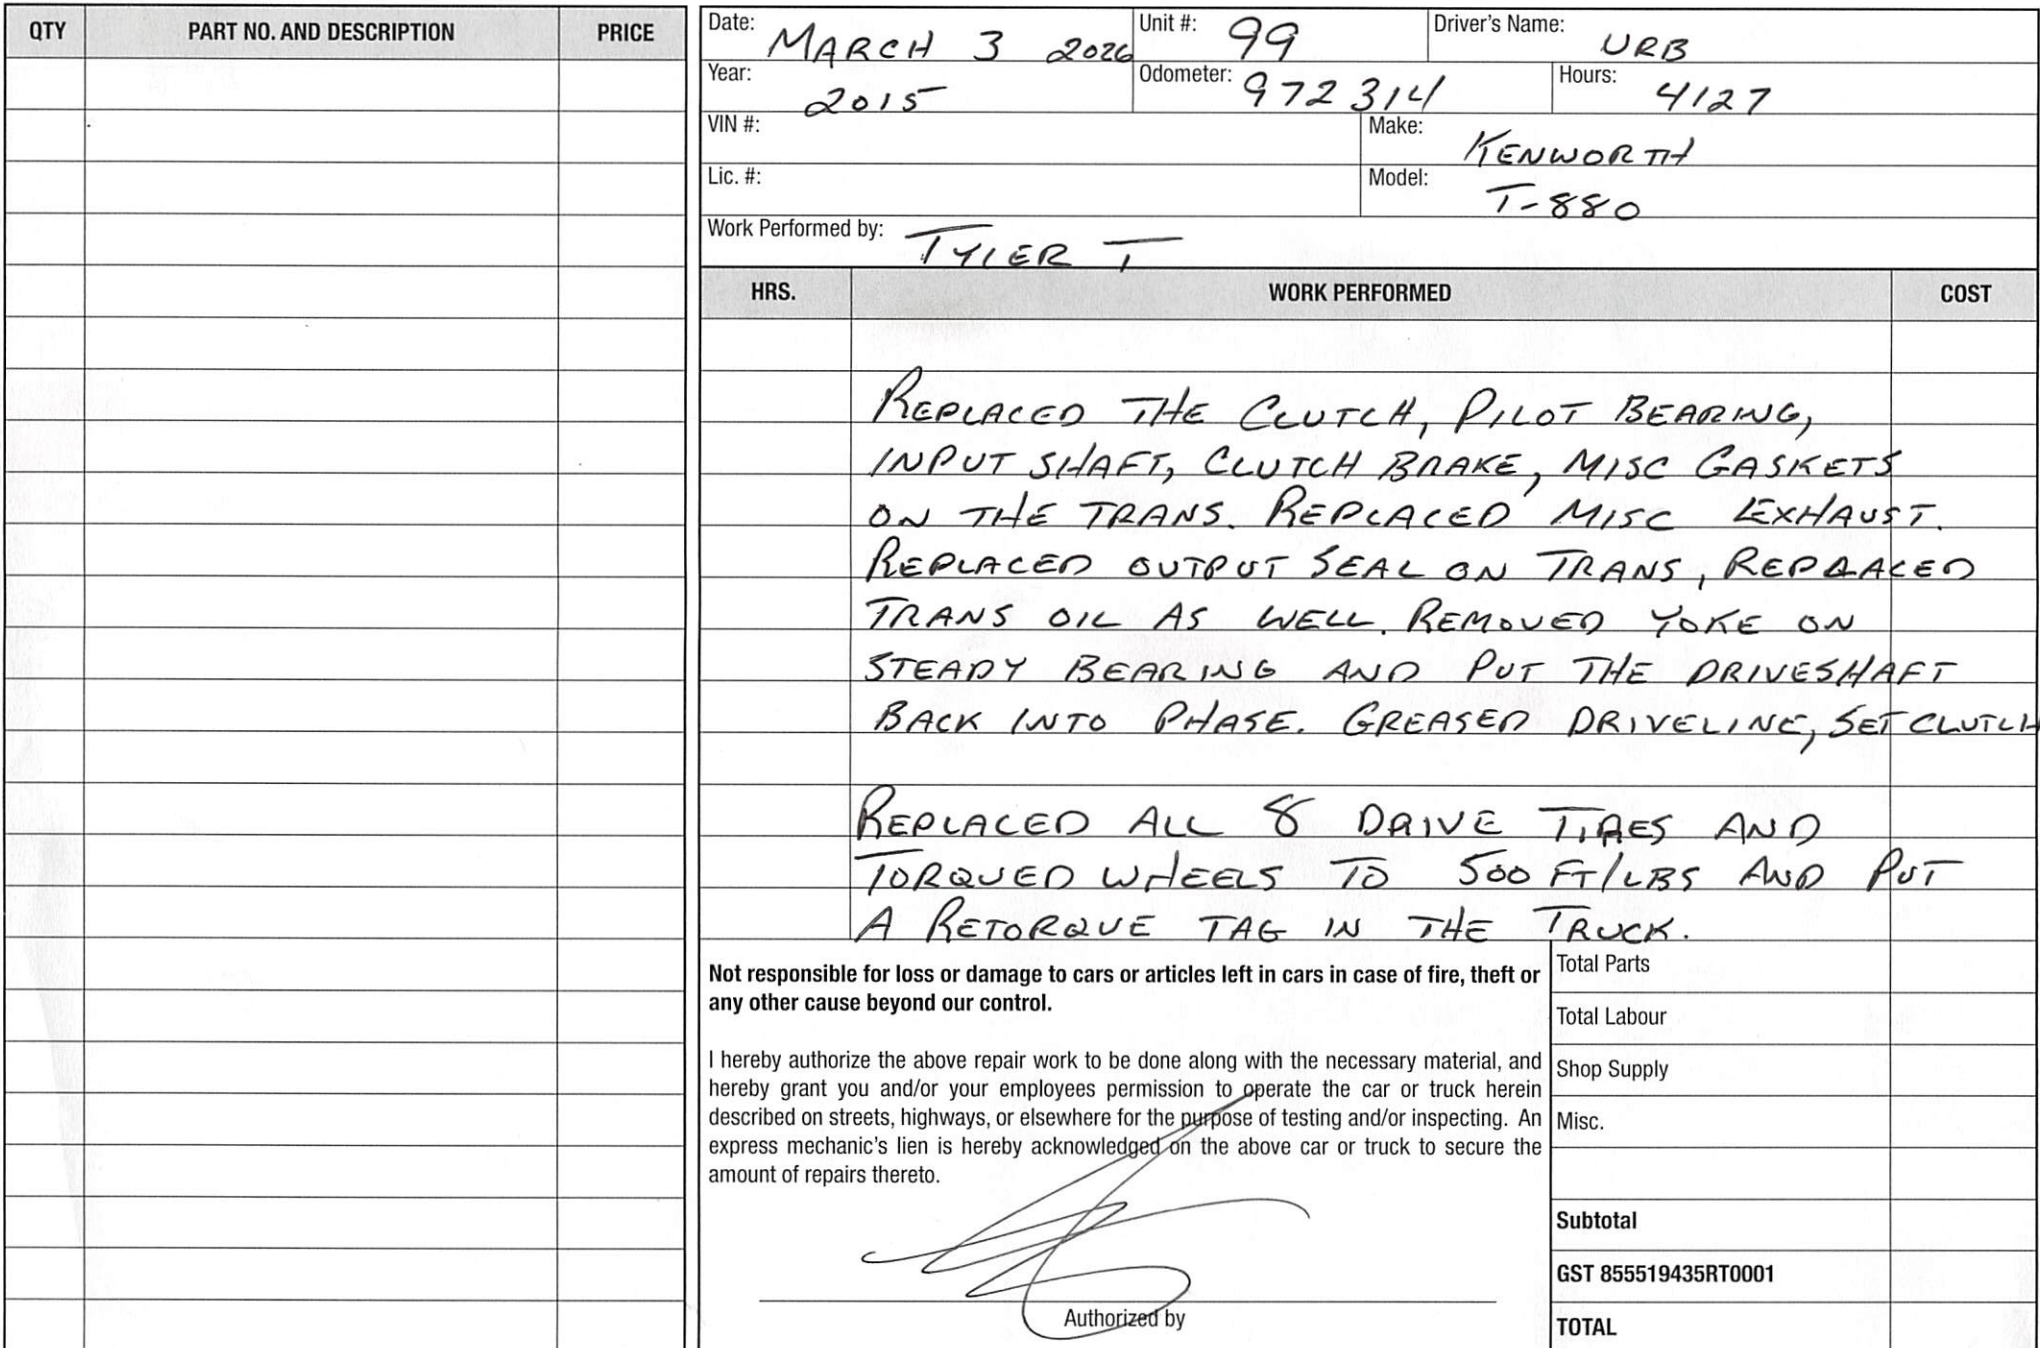 QTY PART NO. AND DESCRIPTION PRICE
Date: MARCH 3 2026 Unit #: 99 Driver's Name: URB
Year: 2015 Odometer: 972314 Hours: 4127
VIN #: Make: KENWORTH
Lic. #: Model: T-880
Work Performed by: TYLER T
HRS. WORK PERFORMED COST
REPLACED THE CLUTCH, PILOT BEARING,
INPUT SHAFT, CLUTCH BRAKE, MISC GASKETS
ON THE TRANS. REPLACED MISC EXHAUST.
REPLACED OUTPUT SEAL ON TRANS, REPLACED
TRANS OIL AS WELL. REMOVED YOKE ON
STEADY BEARING AND PUT THE DRIVESHAFT
BACK INTO PHASE. GREASED DRIVELINE, SET CLUTCH
REPLACED ALL 8 DRIVE TIRES AND
TORQUED WHEELS TO 500 FT/LBS AND PUT
A RETORQUE TAG IN THE TRUCK.
Not responsible for loss or damage to cars or articles left in cars in case of fire, theft or
any other cause beyond our control.
I hereby authorize the above repair work to be done along with the necessary material, and
hereby grant you and/or your employees permission to operate the car or truck herein
described on streets, highways, or elsewhere for the purpose of testing and/or inspecting. An
express mechanic's lien is hereby acknowledged on the above car or truck to secure the
amount of repairs thereto.
Authorized by
Total Parts
Total Labour
Shop Supply
Misc.
Subtotal
GST 855519435RT0001
TOTAL